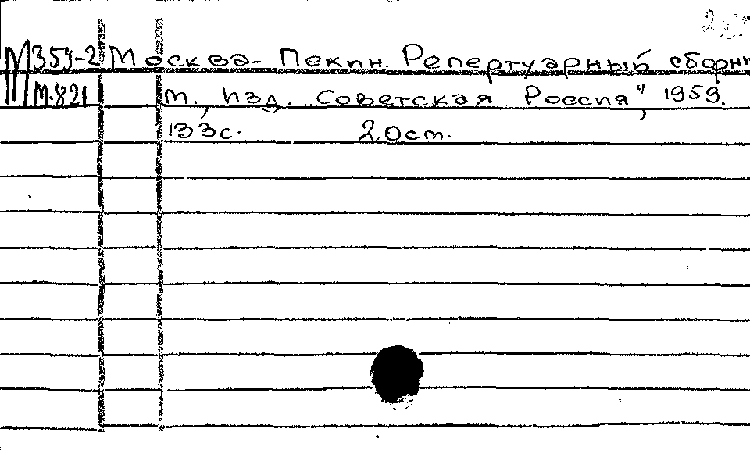 М 359-2 Москва - Пекин. Репертуарный сборни
М.821 М., Изд. "Советская Россия", 1959.
133с. 20см.